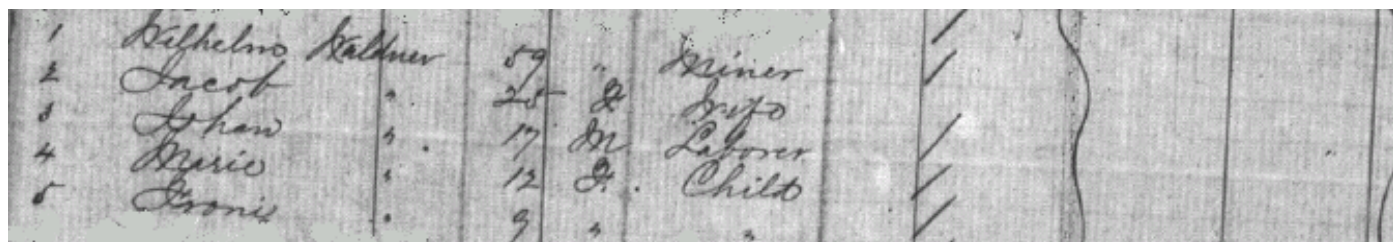 1 Wilhelm Waldner 59 " Miner /
2 Jacob " 25 F Wife /
3 Johan " 17 M Laborer /
4 Marie " 12 F. Child /
5 " 9 " " /